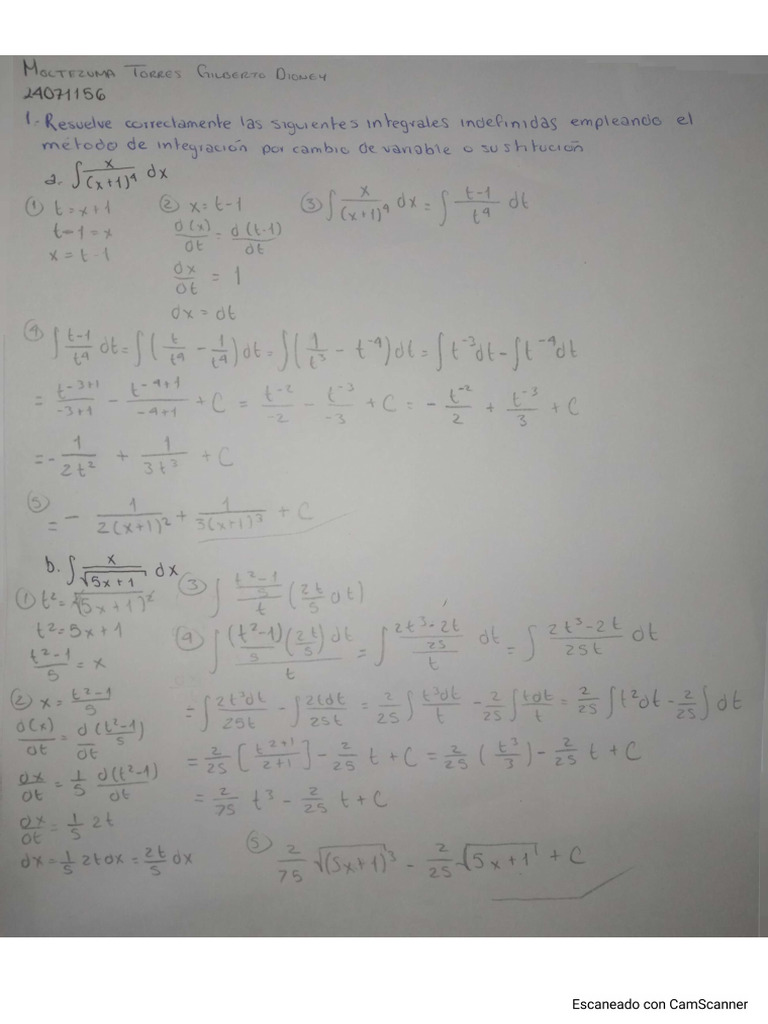 MOCTEZUMA TORRES GILBERTO DIDNEY
24071156
1.- Resuelve correctamente las siguientes integrales indefinidas empleando el
método de integración por cambio de variable o sustitución
a. ∫ x/(x+1)⁴ dx
① t = x+1
t-1 = x
x = t-1
② x = t-1
d(x)/dt = d(t-1)/dt
dx/dt = 1
dx = dt
③ ∫ x/(x+1)⁴ dx = ∫ t-1/t⁴ dt
④ ∫ t-1/t⁴ dt = ∫ (t/t⁴ - 1/t⁴) dt = ∫ (1/t³ - t⁻⁴) dt = ∫ t⁻³dt - ∫ t⁻⁴dt
= t⁻³⁺¹/-3+1 - t⁻⁴⁺¹/-4+1 + C = t⁻²/-2 - t⁻³/-3 + C = - t⁻²/2 + t⁻³/3 + C
= - 1/2t² + 1/3t³ + C
⑤ = - 1/2(x+1)² + 1/3(x+1)³ + C
b. ∫ x/√5x+1 dx
① t² = √(5x+1)²
t² = 5x+1
t²-1/5 = x
② x = t²-1/5
d(x)/dt = d/dt (t²-1/5)
dx/dt = 1/5 d(t²-1)/dt
dx/dt = 1/5 2t
dx = 1/5 2t dx = 2t/5 dx
③ ∫ t²-1/5/t (2t/5 dt)
④ ∫ (t²-1/5)(2t/5)dt/t = ∫ 2t³-2t/25/t dt = ∫ 2t³-2t/25t dt
= ∫ 2t³dt/25t - ∫ 2tdt/25t = 2/25 ∫ t³dt/t - 2/25 ∫ tdt/t = 2/25 ∫ t²dt - 2/25 ∫ dt
= 2/25 [t²⁺¹/2+1] - 2/25 t + C = 2/25 (t³/3) - 2/25 t + C
= 2/75 t³ - 2/25 t + C
⑤ 2/75 √(5x+1)³ - 2/25 √5x+1 + C
Escaneado con CamScanner